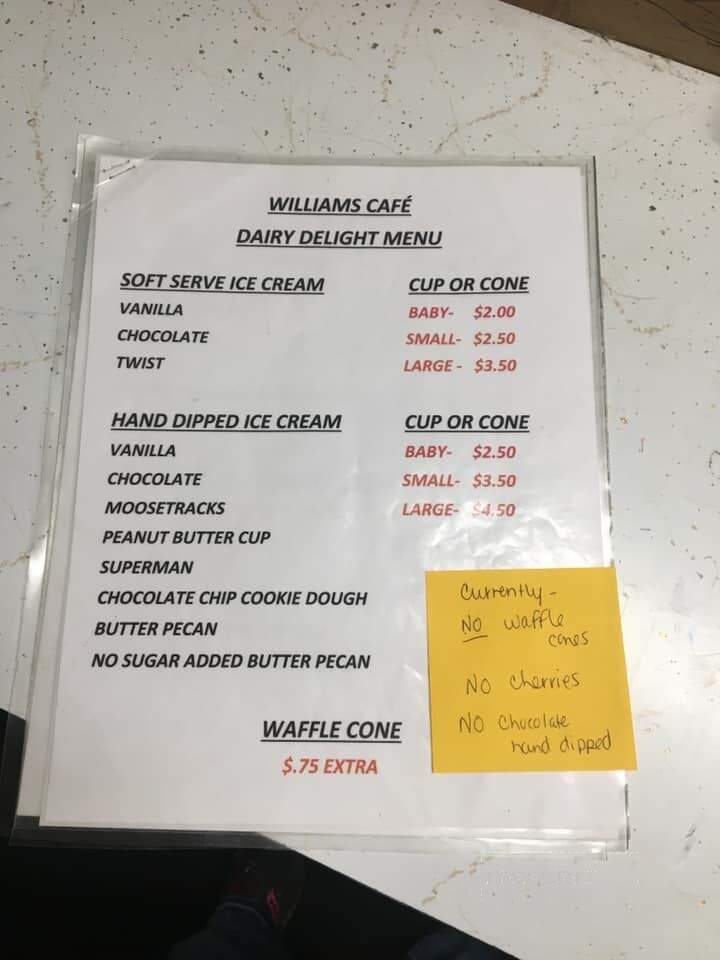 WILLIAMS CAFÉ
DAIRY DELIGHT MENU
SOFT SERVE ICE CREAM
VANILLA
CHOCOLATE
TWIST
CUP OR CONE
BABY- $2.00
SMALL- $2.50
LARGE - $3.50
HAND DIPPED ICE CREAM
VANILLA
CHOCOLATE
MOOSETRACKS
PEANUT BUTTER CUP
SUPERMAN
CHOCOLATE CHIP COOKIE DOUGH
BUTTER PECAN
NO SUGAR ADDED BUTTER PECAN
CUP OR CONE
BABY- $2.50
SMALL- $3.50
LARGE- $4.50
WAFFLE CONE
$.75 EXTRA
Currently -
NO waffle
cones
NO cherries
NO chocolate
hand dipped